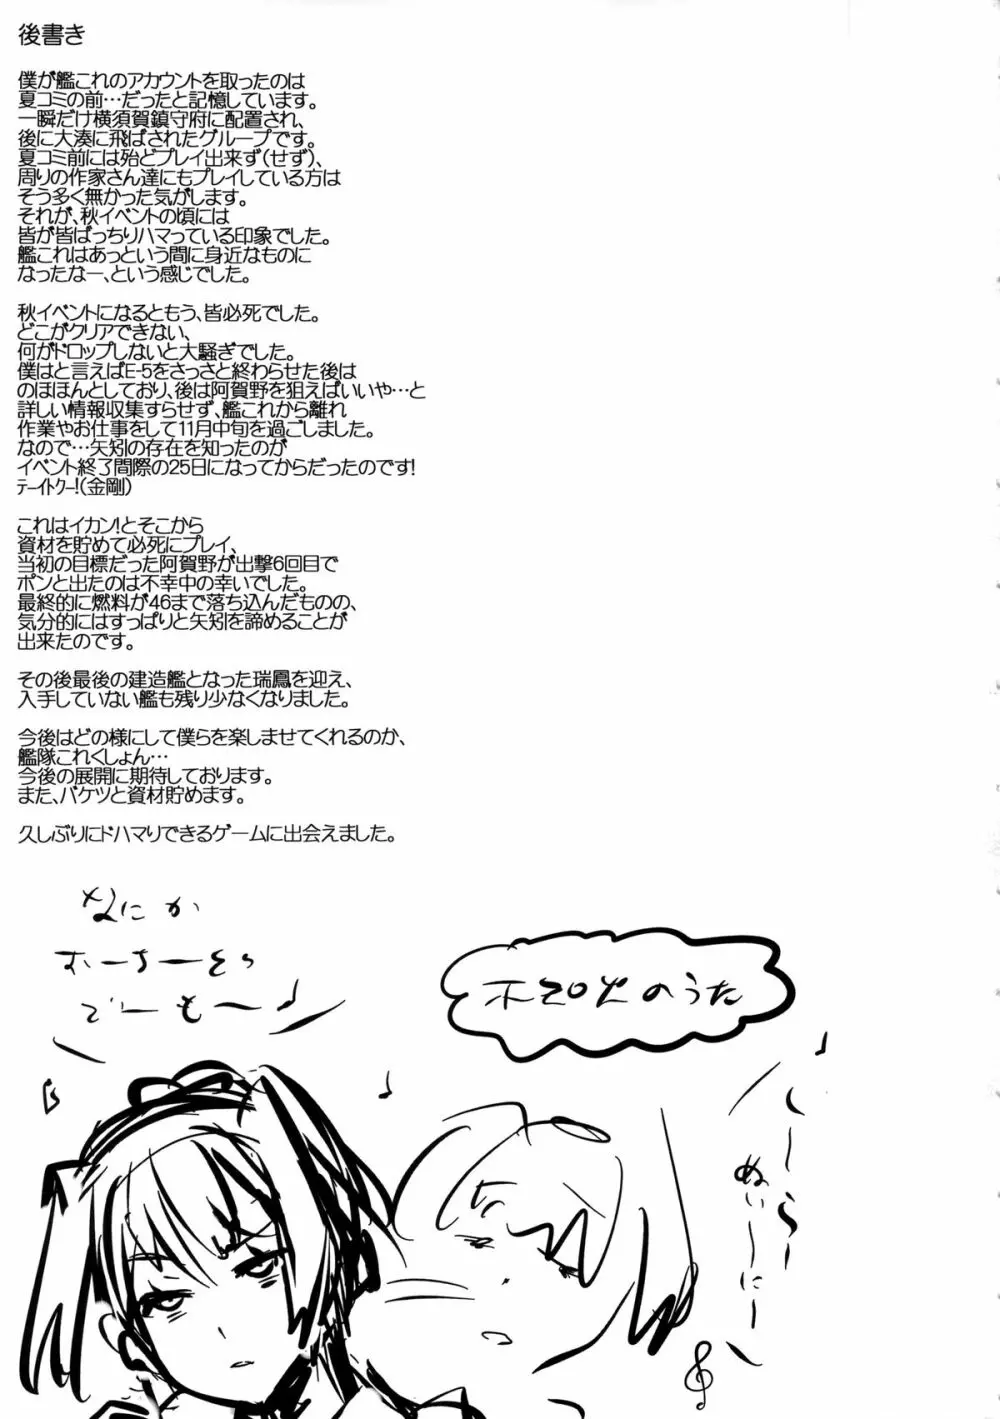 後書き
僕が艦これのアカウントを取ったのは
夏コミの前…だったと記憶しています。
一瞬だけ横須賀鎮守府に配置され、
後に大湊に飛ばされたグループです。
夏コミ前には殆どプレイ出来ず(せず)、
周りの作家さん達にもプレイしている方は
そう多く無かった気がします。
それが、秋イベントの頃には
皆が皆ばっちりハマっている印象でした。
艦これはあっという間に身近なものに
なったなー、という感じでした。
秋イベントになるともう、皆必死でした。
どこがクリアできない、
何がドロップしないと大騒ぎでした。
僕はと言えばE-5をさっさと終わらせた後は
のほほんとしており、後は阿賀野を狙えばいいや…と
詳しい情報収集すらせず、艦これから離れ
作業やお仕事をして11月中旬を過ごしました。
なので…矢矧の存在を知ったのが
イベント終了間際の25日になってからだったのです!
テートクー!(金剛)
これはイカン!とそこから
資材を貯めて必死にプレイ、
当初の目標だった阿賀野が出撃6回目で
ポンと出たのは不幸中の幸いでした。
最終的に燃料が46まで落ち込んだものの、
気分的にはすっぱりと矢矧を諦めることが
出来たのです。
その後最後の建造艦となった瑞鳳を迎え、
入手していない艦も残り少なくなりました。
今後はどの様にして僕らを楽しませてくれるのか、
艦隊これくしょん…
今後の展開に期待しております。
また、バケツと資材貯めます。
久しぶりにドハマりできるゲームに出会えました。
なにか
でーも〜♪
のうた
し〜ら〜
ぬい〜に〜